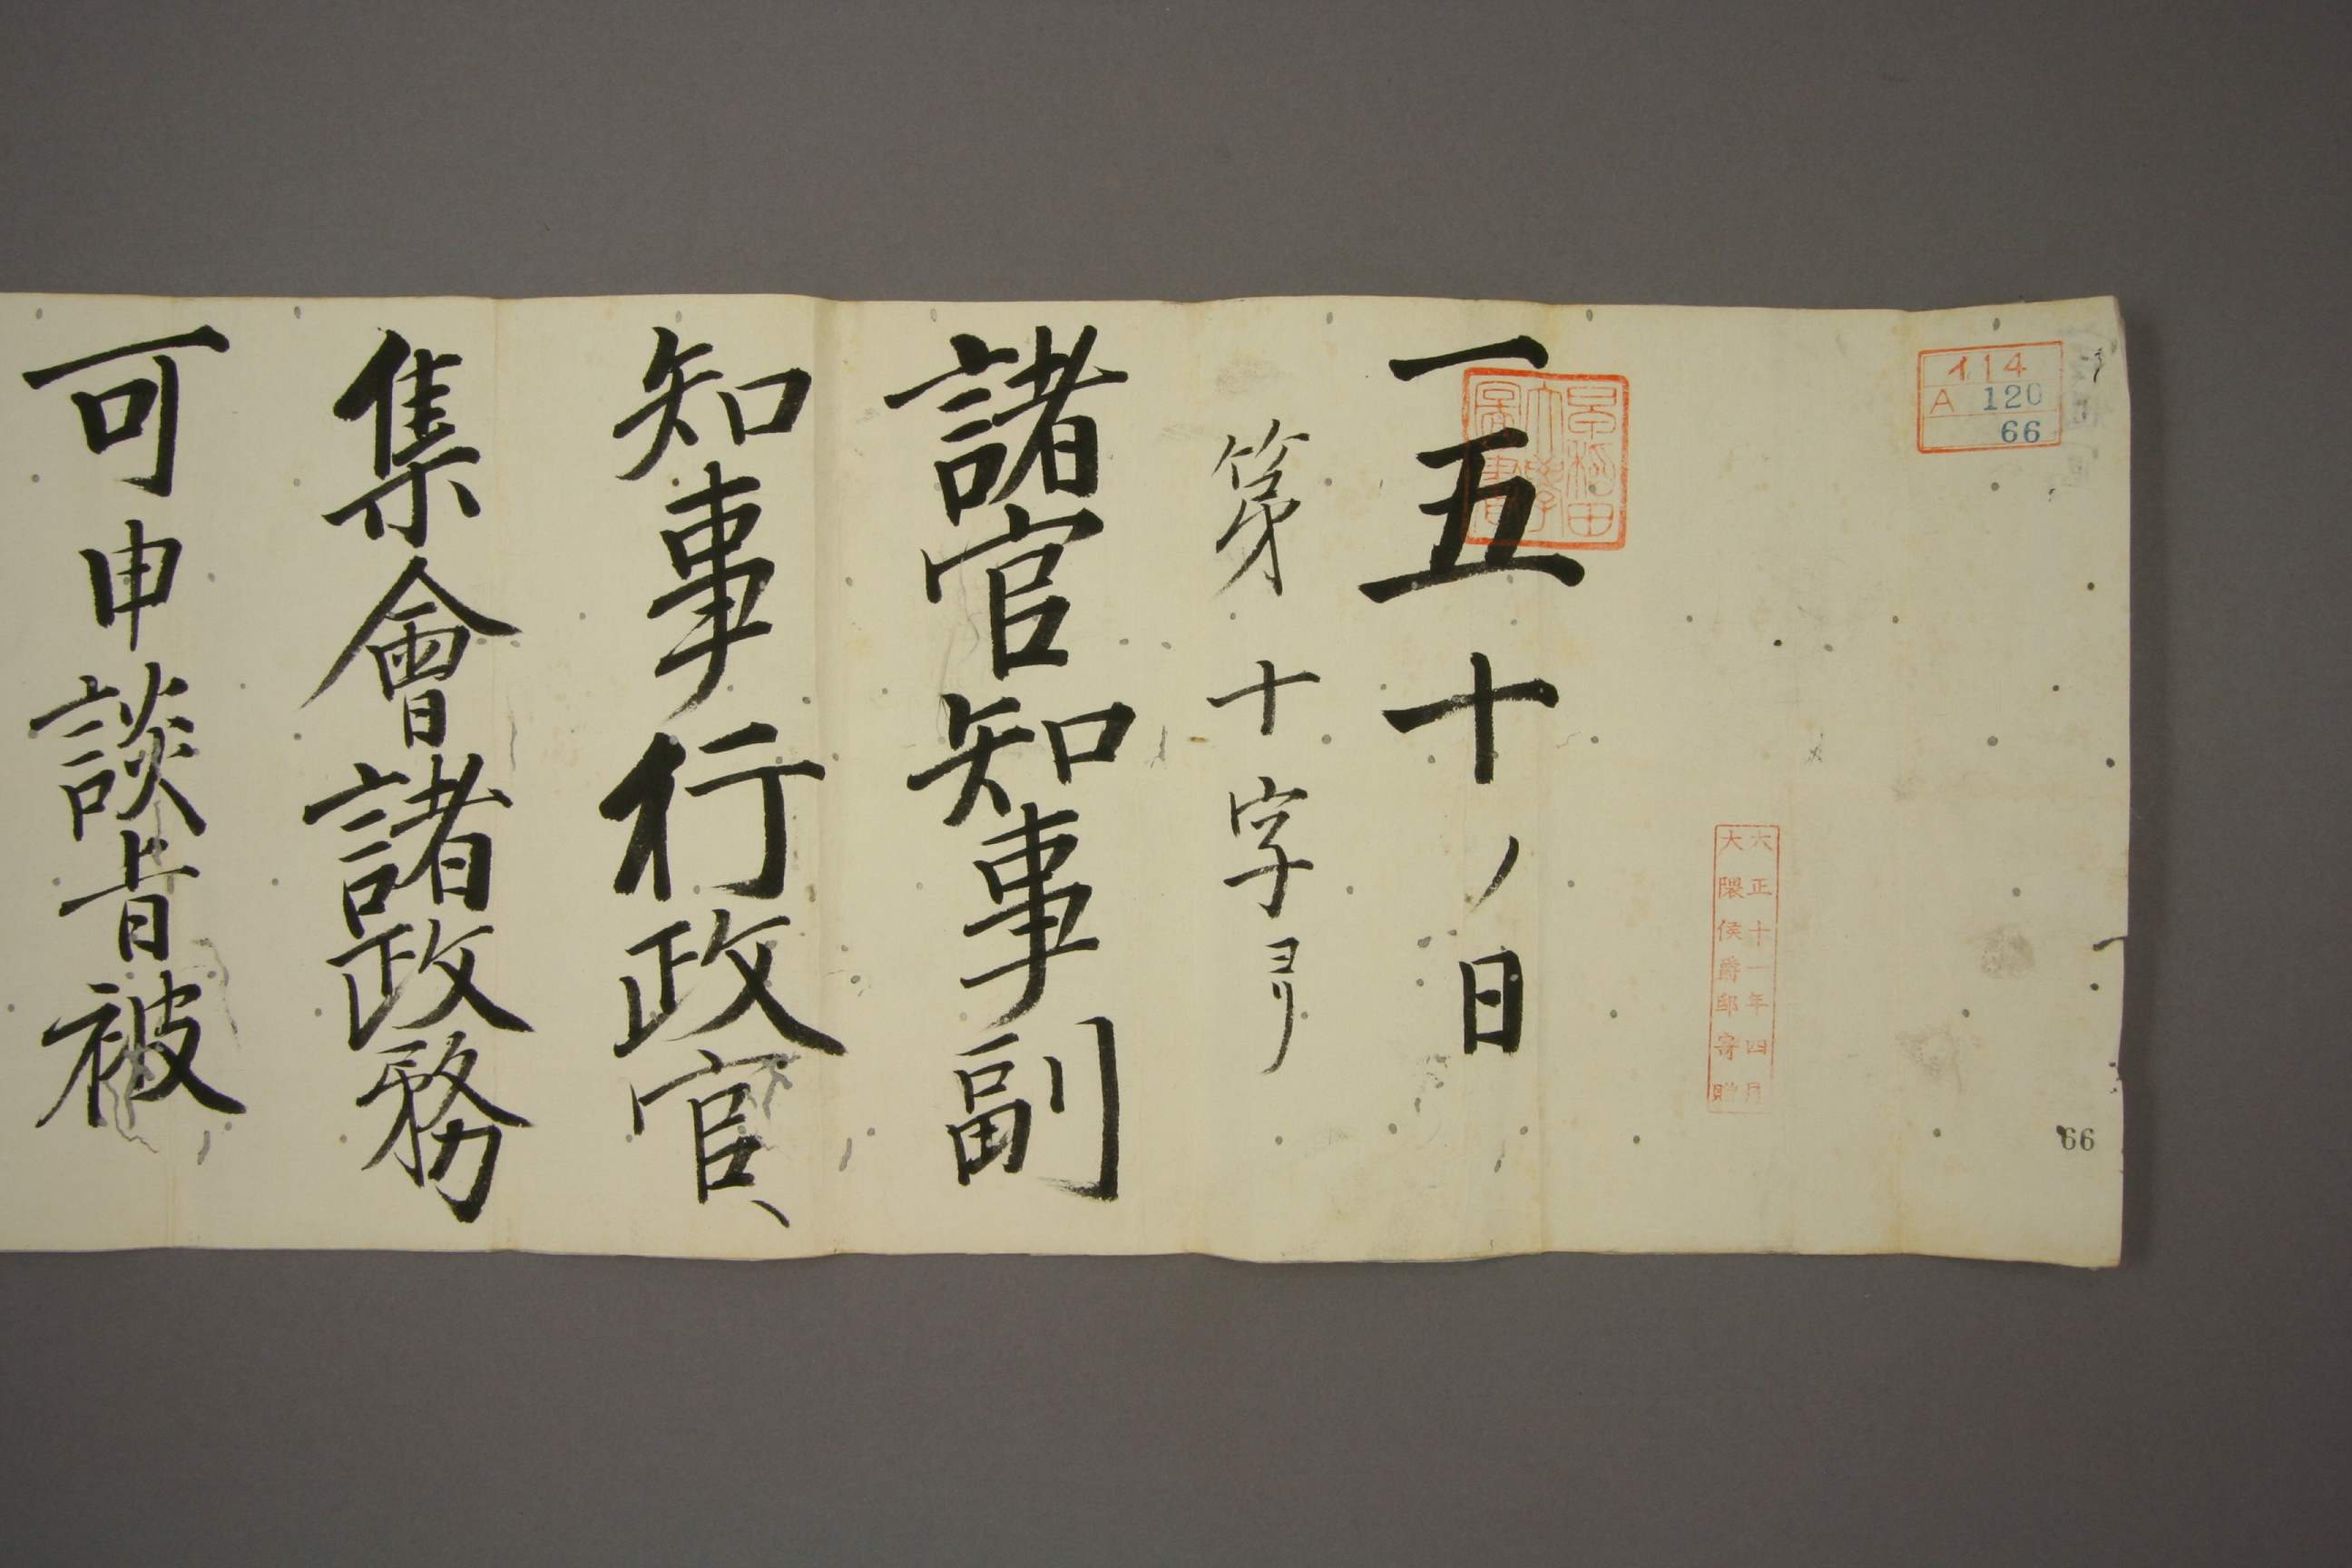 イ14
A 120
66
大正十一年四月
大隈侯爵邸寄贈
66
早稲田
大學
圖書
一五十ノ日
第十字ヨリ
諸官知事副
知事行政官
集會諸政務
可申談旨被